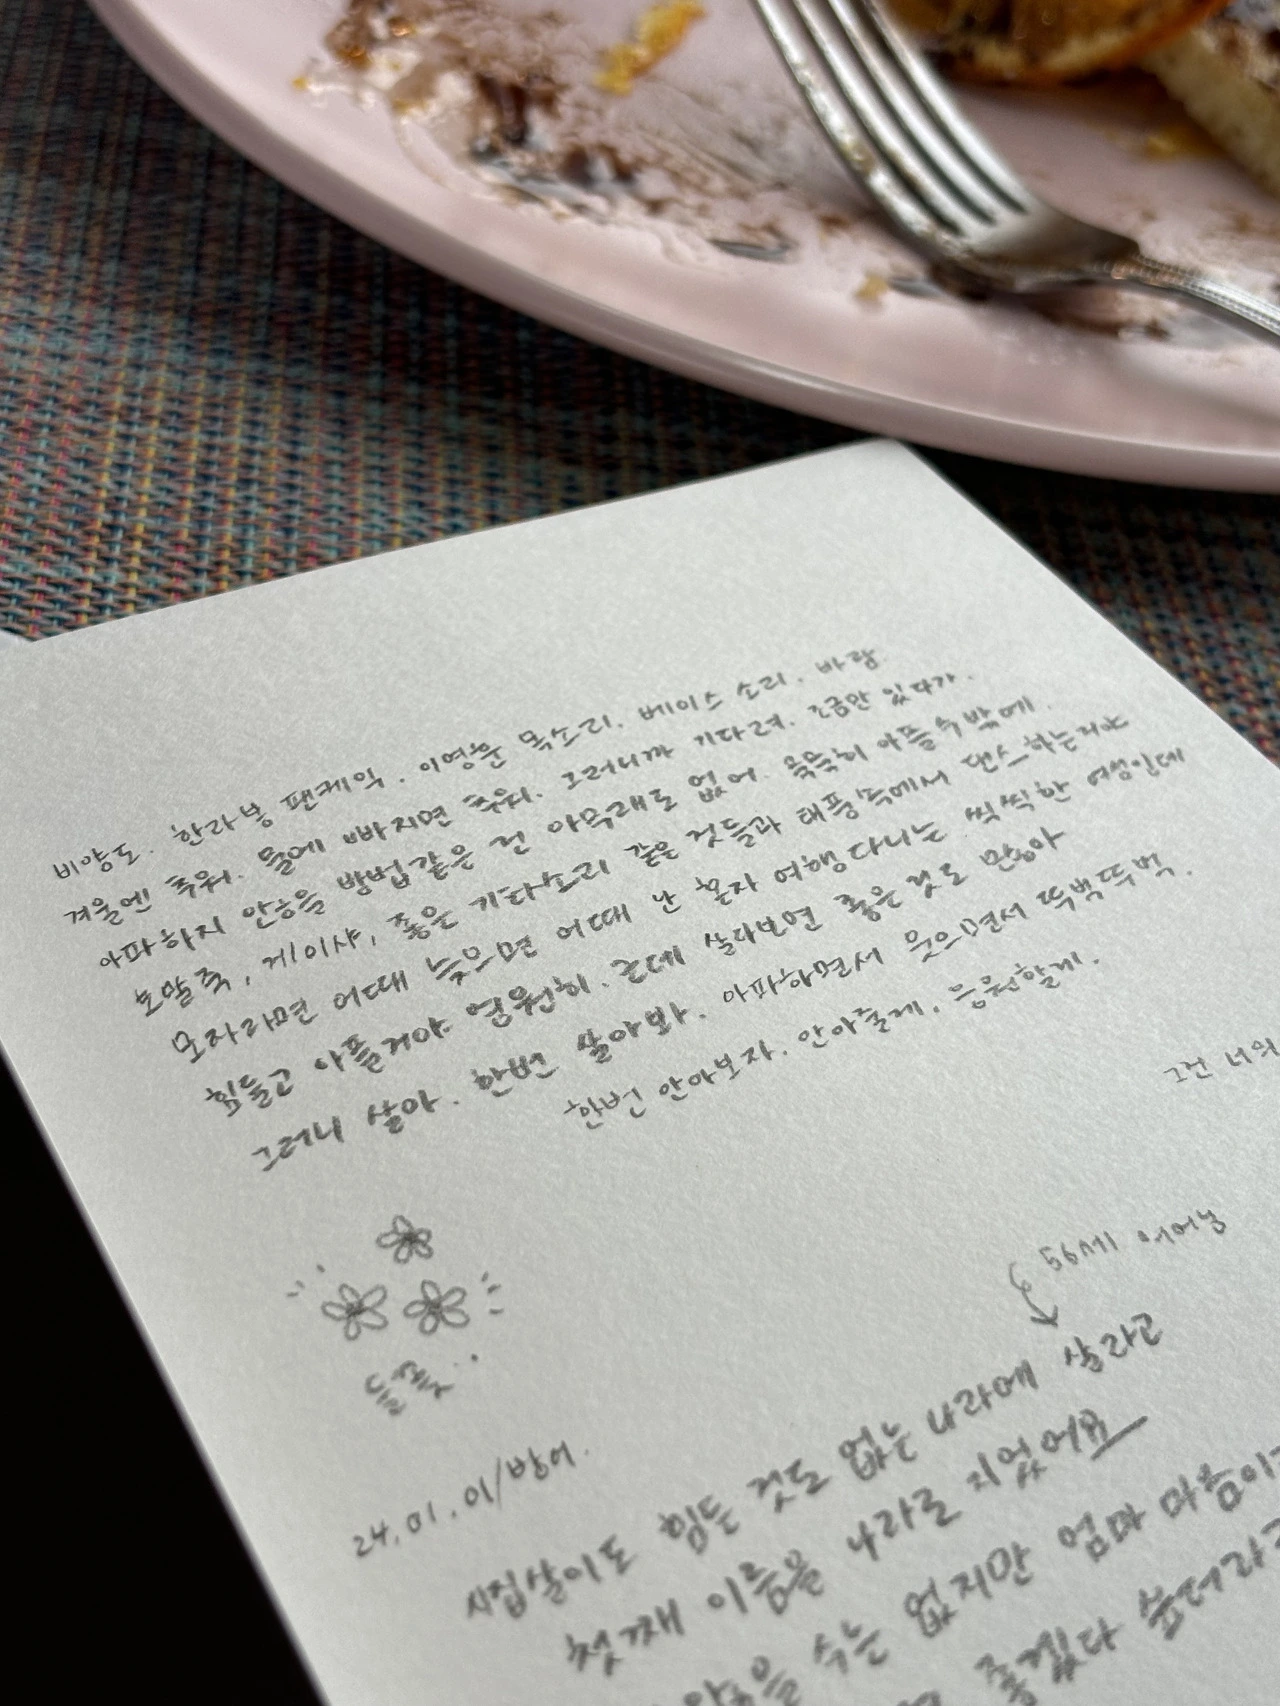 비양도. 한라봉 팬케익. 이영훈 목소리. 베이스 소리. 바람
겨울엔 추워. 물에 빠지면 추워. 그러니까 기다려. 조금만 있다가.
아파하지 않을 방법같은 건 아무래도 없어. 묵묵히 아플수밖에.
보말죽, 게이샤, 좋은 기타소리 같은 것들과 태풍속에서 댄스하는거야
모자라면 어때 늦으면 어때 난 혼자 여행다니는 씩씩한 여성인데
힘들고 아플거야 영원히. 근데 살다보면 좋은 것도 많아
그러니 살아. 한번 살아봐. 아파하면서 웃으면서 뚜벅뚜벅.
한번 안아보자. 안아줄게. 응원할게.
그건 너의
들꽃..
24.01.01/방어.
56세 어머님
시집살이도 힘든 것도 없는 나라에 살라고
첫째 이름을 나라로 지었어요
수는 없지만 엄마 마음이
좋겠다 싶더라고